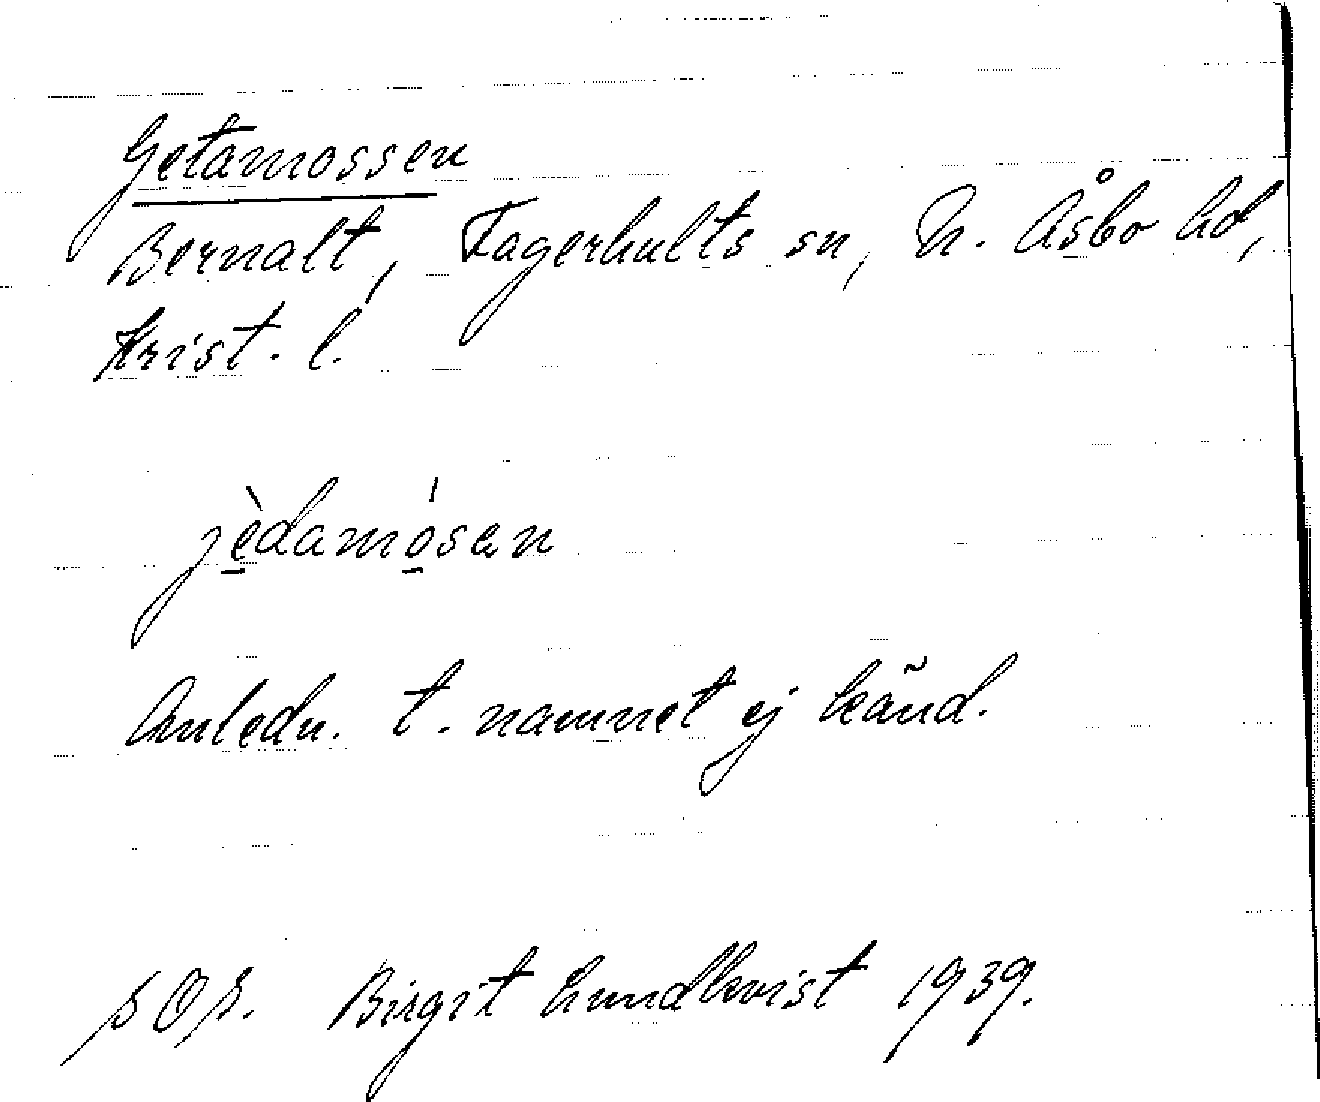 Getamossen
Bernalt, Fagerhults sn, N. Åsbo hd,
Krist. l.
jèdamósen
Anledn. t. namnet ej känd.
Birgit Lundkvist 1939.